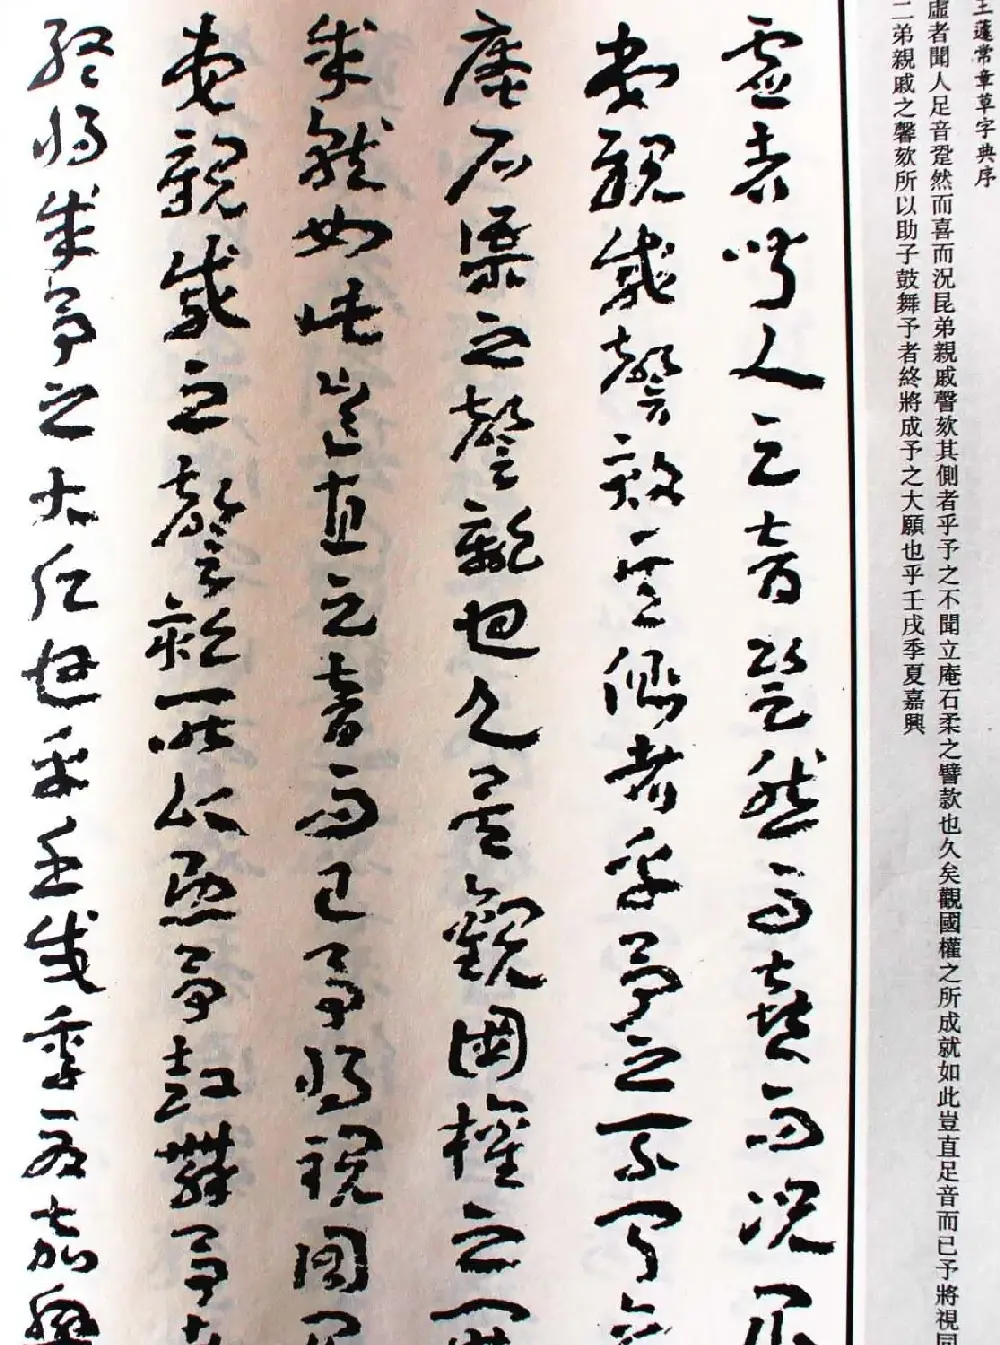 王蘧常章草字典序
虛者聞人足音跫然而喜而況昆弟親戚謦欬其側者乎予之不聞立庵石柔之譬款也久矣觀國權之所成就如此豈直足音而已予將視同
二弟親戚之馨欬所以助子鼓舞予者終將成予之大願也乎壬戌季夏嘉興
虛者聞人足音跫然而喜而況昆
弟親戚謦欬其側者乎予之不聞立
庵石柔之謦欬也久矣觀國權之所
成就如此豈直足音而已予將視同昆
弟親戚之謦欬所以予鼓舞予者
終將成予之大也乎壬戌季夏嘉興